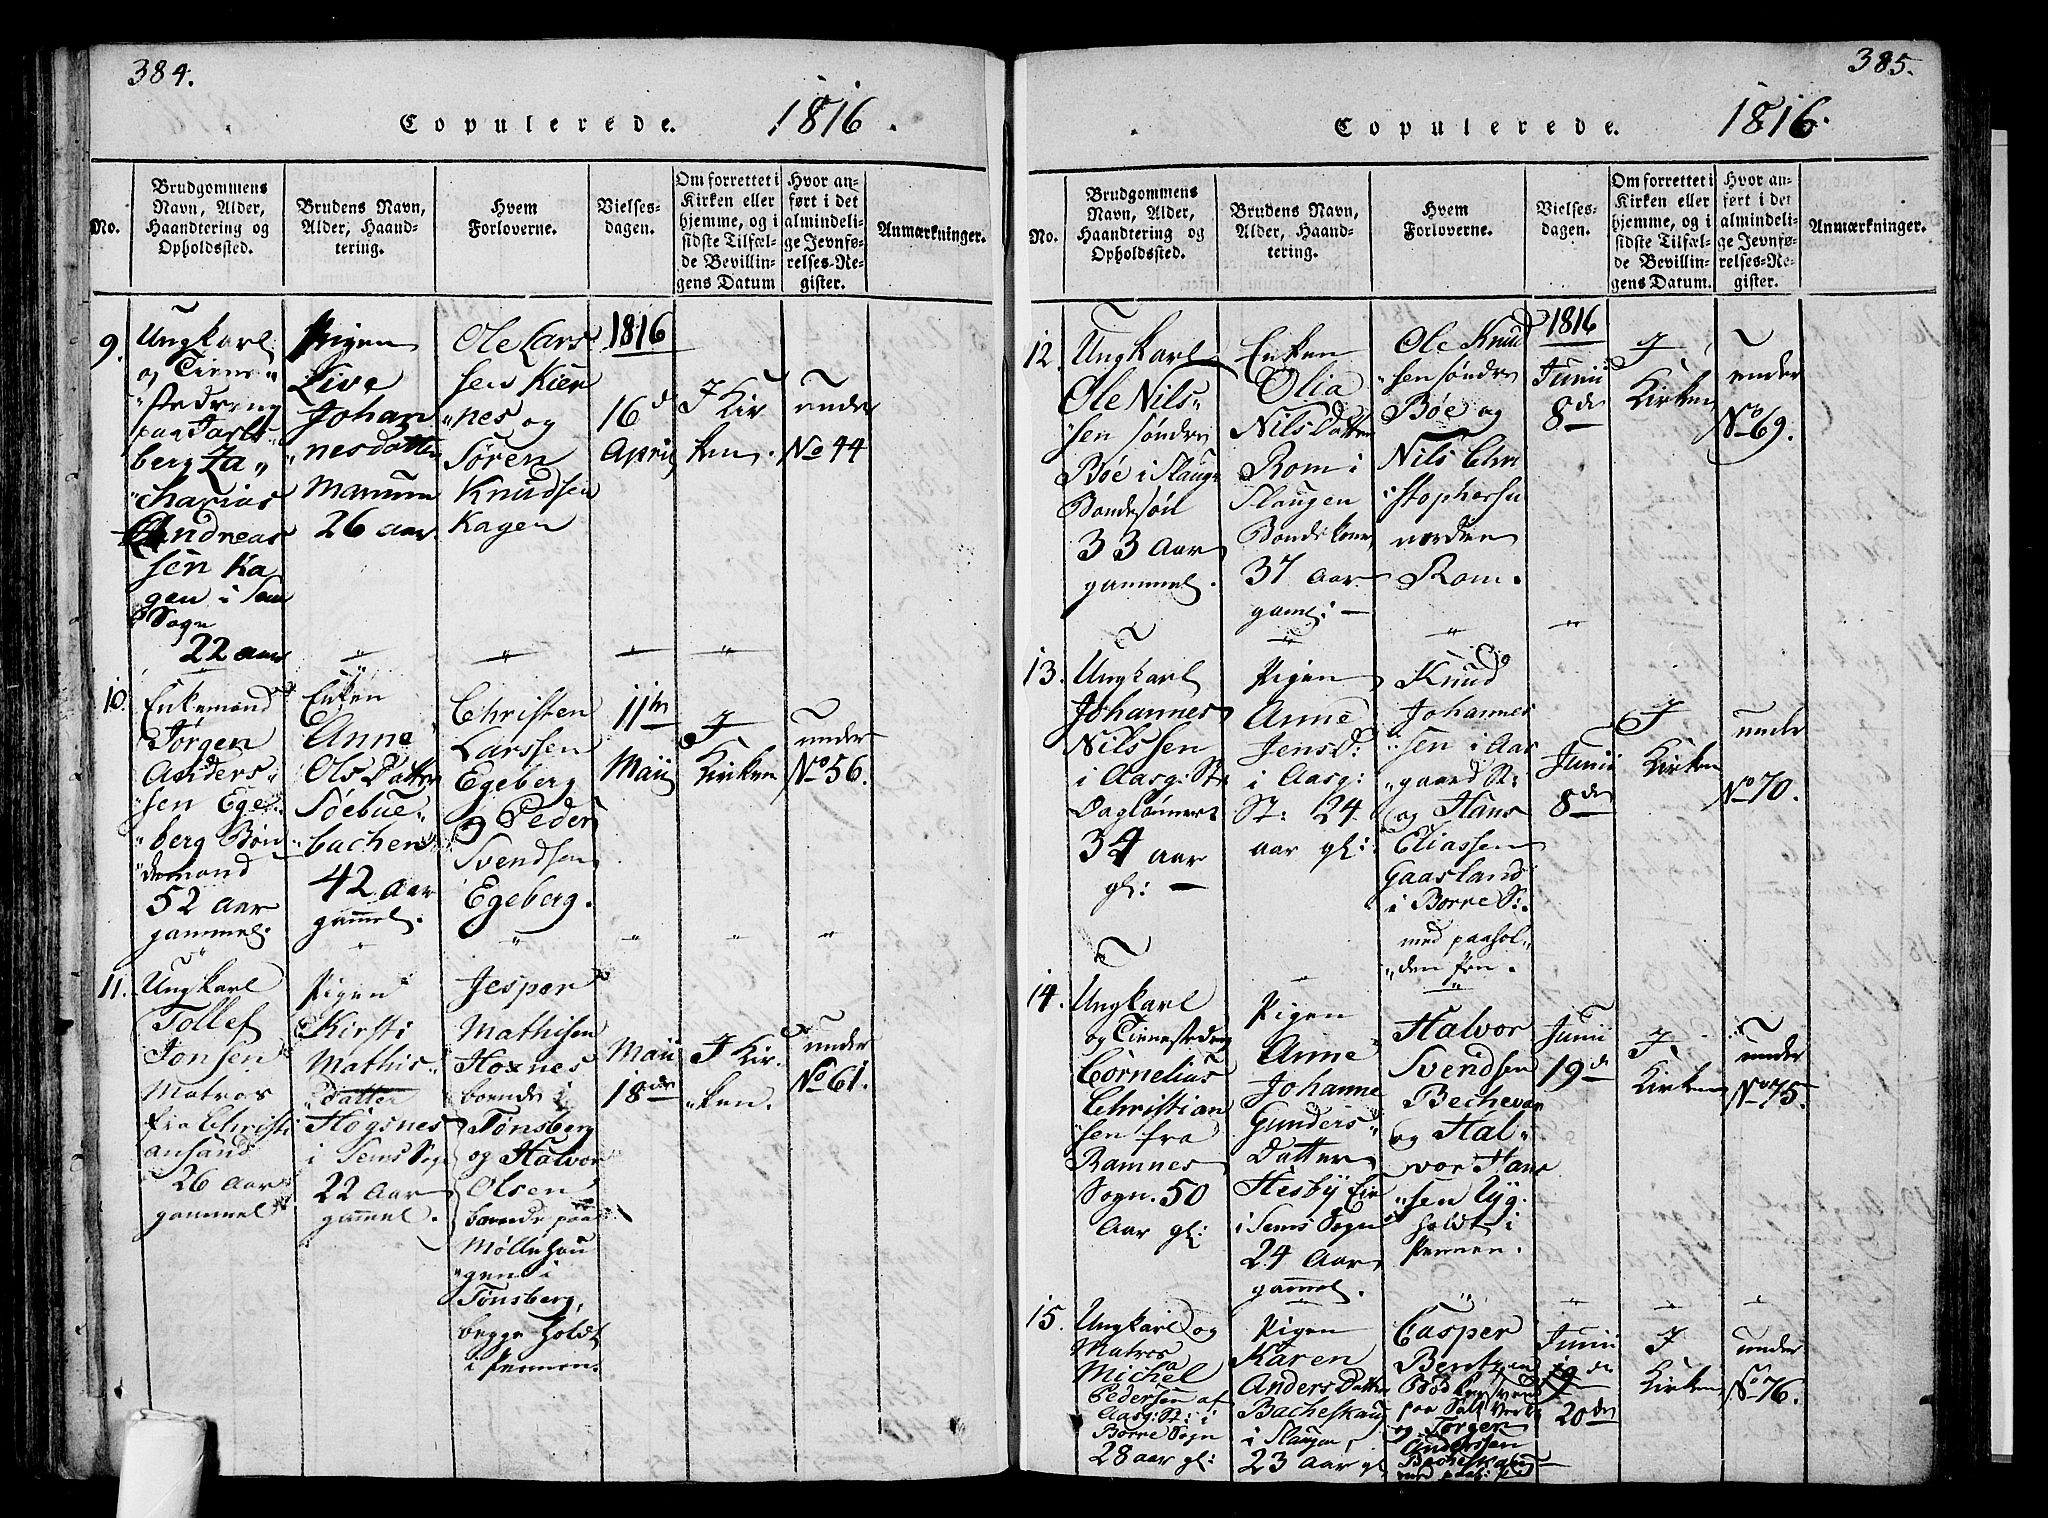 384.
Copulerede. 1816.
No.
Brudgommens
Navn, Alder,
Haandtering og
Opholdssted.
Brudens Navn,
Alder, Haand-
tering.
Hvem
Forloverne.
Vielses-
dagen.
Om forrettet i
Kirken eller
hjemme, og i
sidste Tilfæl-
de Bevillin-
gens Datum
Hvor an-
ført i det
almindeli-
ge Jevnfø-
relses-Re-
gister.
Anmærkninger.
9.
Ungkarl
og Tiene-
stedreng
paa Jarls-
berg Za-
charias
Andreas
sen Ka
gen i Sem
Sogn
22 aar
Pigen
Live
Johan
nesdatter
26 aar.
Ole Lars
sen Kier
nes og
Sören
Knudsen
Kagen
1816
16 d
April
I Kir
ken.
under
No 44
10.
Enkemand
Jörgen
Anders-
sen Ege-
berg Bön
demand
52 aar
gammel.
Enken
Anne
Ols Datter
Söebue-
bachen
42 aar
gammel.
Christen
Larssen
Egeberg
og Peder
Svendsen
Egeberg.
11th
Maii
I
Kirken
under
No 56.
11.
Ungkarl
Tollef
Jonsen
Matros
fra Christi
ansand
26 aar
gammel
Pigen
Kirsti
Mathis-
datter
Högsnes
i Sems Sogn
22 aar
gammel.
Jesper
Mathisen
Hoxnes
boende i
Tönsberg
og Halvor
Olsen
boende paa
Möllehou
gen i
Tönsberg,
begge holdt
i Pennen.
Maii
18de
I Kir.
ken.
under
No 61.
385.
Copulerede. 1816.
No.
Brudgommens
Navn, Alder,
Haandtering og
Opholdssted.
Brudens Navn,
Alder, Haand-
tering.
Hvem
Forloverne.
Vielses-
dagen.
Om forrettet i
Kirken eller
hjemme, og i
sidste Tilfæl-
de Bevillin-
gens Datum.
Hvor an-
ført i det
almindeli-
ge Jevnfø-
relses-Re-
gister.
Anmærkninger.
12.
Ungkarl
Ole Nils-
sen söndre
Böe i Slaug
Bondesön
33 Aar
gammel.
Enken
Olia
Nils Datter
Rom i
Slaugen
Bondekone
37 aar
gaml:
Ole Knud
sen söndre
Böe og
Nils Chri
stophersen
nordre
Rom.
1816
Junii
8de
I
Kirken
under
No 69.
13.
Ungkarl
Johannes
Nilssen
i Aasg: St:
Daglönner
34 aar
gl:
Pigen
Anne
Jens D:
i Aasg:
St: 24
aar gl:
Knud
Johannes
sen i Aas
gaard St:
og Hans
Eliassen
Gaasland
i Borre S:
med paahol-
den Pen.
Junii
8de
I
Kirken
under
No 70.
14.
Ungkarl
og Tienestedreng
Cornelius
Christian
sen fra
Ramnes
Sogn. 50
Aar gl:
Pigen
Anne
Johanne
Gunders-
Datter
Hesby Eie
i Sems Sogn
24 Aar
gammel.
Halvor
Svendsen
Bechevar
og Hal-
vor Hans
sen
holdt i
Pennen.
Junii
19d
I
Kirken
under
No 75.
15.
Ungkarl og
Matros
Michel
Pedersen af
Aasg: St: i
Borre Sogn
28 aar gl:
Pigen
Karen
Anders Datter
Bacheskaug
i Slaugen,
23 Aar gl
Casper
Bentzen
paa Salt Verk
og Jörgen
Anderssen
Bacheskaug
Junii
20de
I
Kirken
under
No 76.